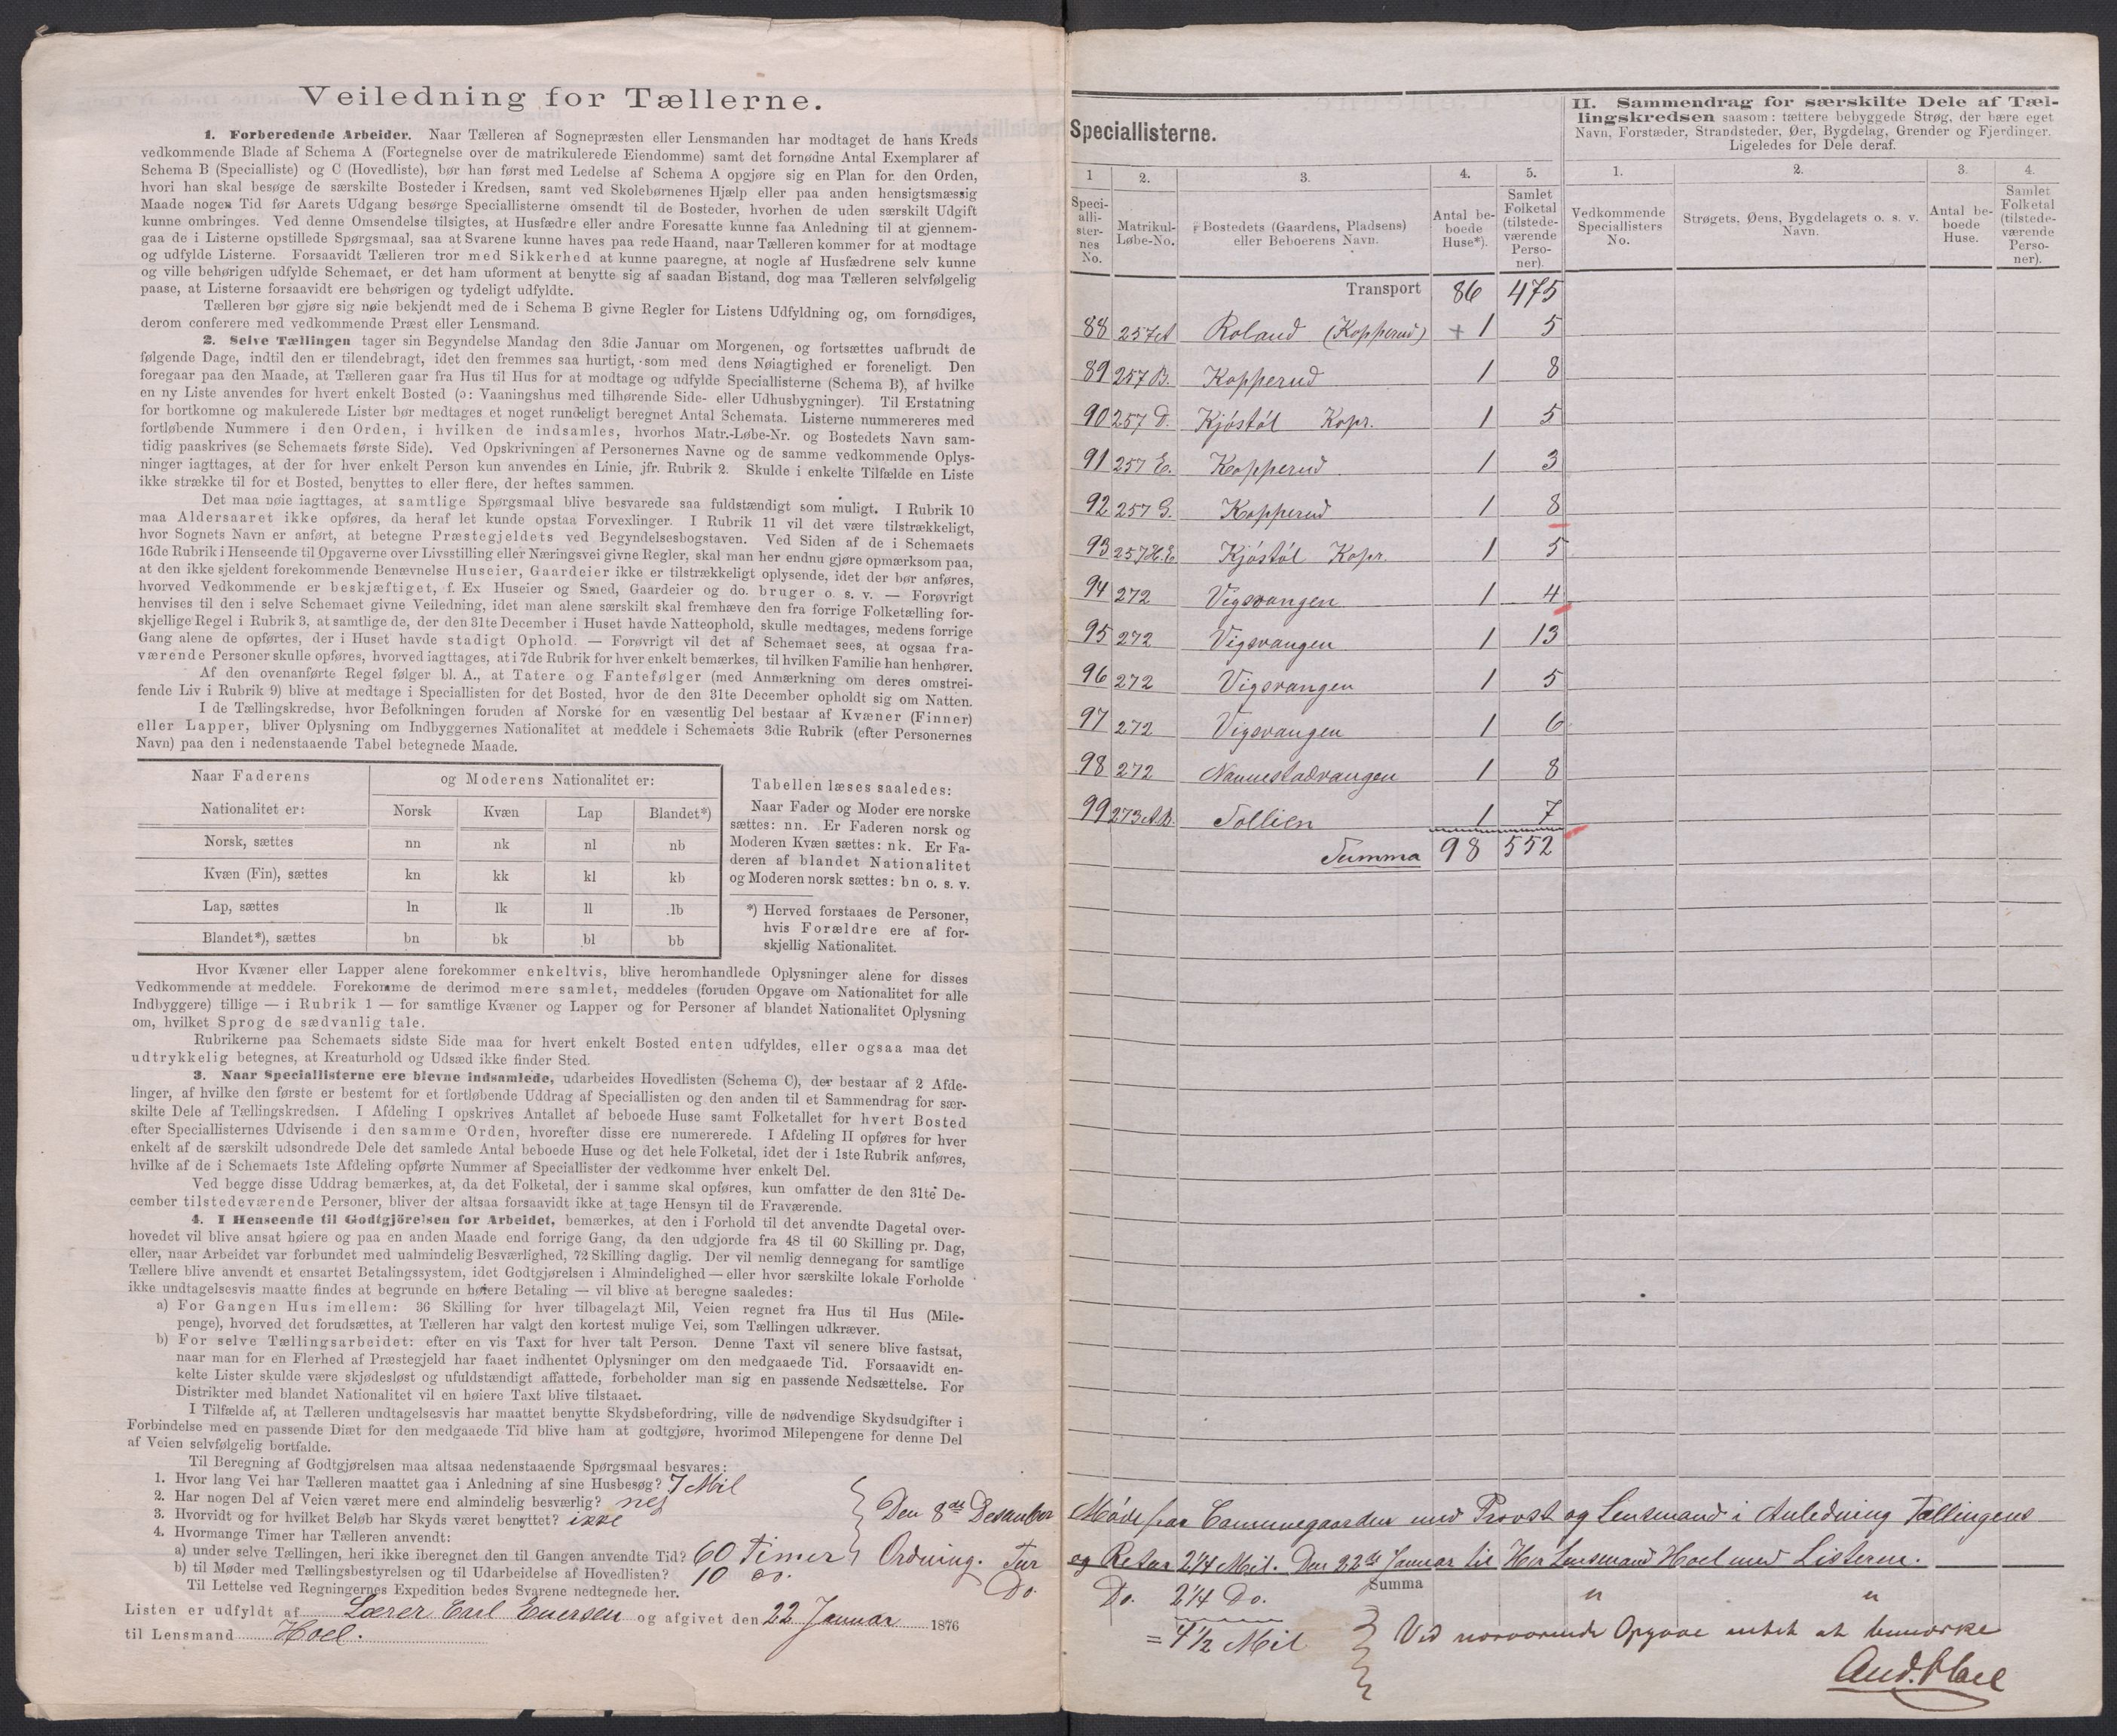 Veiledning for Tællerne.
1. Forberedende Arbeider. Naar Tælleren af Sognepræsten eller Lensmanden har modtaget de hans Kreds
vedkommende Blade af Schema A (Fortegnelse over de matrikulerede Eiendomme) samt det fornødne Antal Exemplarer af
Schema B (Specialliste) og C (Hovedliste), bør han først med Ledelse af Schema A opgjøre sig en Plan for den Orden,
hvori han skal besøge de særskilte Bosteder i Kredsen, samt ved Skolebørnenes Hjælp eller paa anden hensigtsmæssig
Maade nogen Tid før Aarets Udgang besørge Speciallisterne omsendt til de Bosteder, hvorhen de uden særskilt Udgift
kunne ombringes. Ved denne Omsendelse tilsigtes, at Husfædre eller andre Foresatte kunne faa Anledning til at gjennem-
gaa de i Listerne opstillede Spørgsmaal, saa at Svarene kunne haves paa rede Haand, naar Tælleren kommer for at modtage
og udfylde Listerne. Forsaavidt Tælleren tror med Sikkerhed at kunne paaregne, at nogle af Husfædrene selv kunne
og ville behørigen udfylde Schemaet, er det ham uforment at benytte sig af saadan Bistand, dog maa Tælleren selvfølgelig
paase, at Listerne forsaavidt ere behørigen og tydeligt udfyldte.
Tælleren bør gjøre sig nøie bekjendt med de i Schema B givne Regler for Listens Udfyldning og, om fornødiges,
derom conferere med vedkommende Præst eller Lensmand.
2. Selve Tællingen tager sin Begyndelse Mandag den 3die Januar om Morgenen, og fortsættes uafbrudt de
følgende Dage, indtil den er tilendebragt, idet den fremmes saa hurtigt, som med dens Nøiagtighed er foreneligt. Den
foregaar paa den Maade, at Tælleren gaar fra Hus til Hus for at modtage og udfylde Speciallisterne (Schema B), af hvilke
en ny Liste anvendes for hvert enkelt Bosted (ɔ: Vaaningshus med tilhørende Side- eller Udhusbygninger). Til Erstatning
for bortkomne og makulerede Lister bør medtages et noget rundeligt beregnet Antal Schemata. Listerne nummereres med
fortløbende Nummere i den Orden, i hvilken de indsamles, hvorhos Matr.-Løbe-Nr. og Bostedets Navn sam-
tidig paaskrives (se Schemaets første Side). Ved Opskrivningen af Personernes Navne og de samme vedkommende Oplys-
ninger iagttages, at der for hver enkelt Person kun anvendes én Linie, jfr. Rubrik 2. Skulde i enkelte Tilfælde en Liste
ikke strække til for et Bosted, benyttes to eller flere, der heftes sammen.
Det maa nøie iagttages, at samtlige Spørgsmaal blive besvarede saa fuldstændigt som muligt. I Rubrik 10
maa Aldersaaret ikke opføres, da heraf let kunde opstaa Forvexlinger. I Rubrik 11 vil det være tilstrækkeligt,
hvor Sognets Navn er anført, at betegne Præstegjeldets ved Begyndelsesbogstaven. Ved Siden af de i Schemaets
16de Rubrik i Henseende til Opgaverne over Livsstilling eller Næringsvei givne Regler, skal man her endnu gjøre opmærksom paa,
at den ikke sjeldent forekommende Benævnelse Huseier, Gaardeier ikke er tilstrækkeligt oplysende, idet der bør anføres,
hvorved Vedkommende er beskjæftiget, f. Ex Huseier og Smed, Gaardeier og do. bruger o. s. v. — Forøvrigt
henvises til den i selve Schemaet givne Veiledning, idet man alene særskilt skal fremhæve den fra forrige Folketælling for-
skjellige Regel i Rubrik 3, at samtlige de, der den 31te December i Huset havde Natteophold, skulle medtages, medens forrige
Gang alene de opførtes, der i Huset havde stadigt Ophold. — Forøvrigt vil det af Schemaet sees, at ogsaa fra-
værende Personer skulle opføres, hvorved iagttages, at i 7de Rubrik for hver enkelt bemærkes, til hvilken Familie han henhører.
Af den ovenanførte Regel følger bl. A., at Tatere og Fantefølger (med Anmærkning om deres omstrei-
fende Liv i Rubrik 9) blive at medtage i Speciallisten for det Bosted, hvor de den 31te December opholdt sig om Natten.
I de Tællingskredse, hvor Befolkningen foruden af Norske for en væsentlig Del bestaar af Kvæner (Finner)
eller Lapper, bliver Oplysning om Indbyggernes Nationalitet at meddele i Schemaets 3die Rubrik (efter Personernes
Navn) paa den i nedenstaaende Tabel betegnede Maade.
Naar Faderens og Moderens Nationalitet er:
Nationalitet er: Norsk Kvæn Lap Blandet*)
Norsk, sættes nn nk nl nb
Kvæn (Fin), sættes kn kk kl kb
Lap, sættes ln lk ll lb
Blandet*), sættes bn bk bl bb
Tabellen læses saaledes:
Naar Fader og Moder ere norske
sættes: nn. Er Faderen norsk og
Moderen Kvæn sættes: nk. Er Fa-
deren af blandet Nationalitet
og Moderen norsk sættes: bn o. s. v.
*) Herved forstaaes de Personer,
hvis Forældre ere af for-
skjellig Nationalitet.
Hvor Kvæner eller Lapper alene forekommer enkeltvis, blive heromhandlede Oplysninger alene for disses
Vedkommende at meddele. Forekomme de derimod mere samlet, meddeles (foruden Opgave om Nationalitet for alle
Indbyggere) tillige — i Rubrik 1 — for samtlige Kvæner og Lapper og for Personer af blandet Nationalitet Oplysning
om, hvilket Sprog de sædvanlig tale.
Rubrikerne paa Schemaets sidste Side maa for hvert enkelt Bosted enten udfyldes, eller ogsaa maa det
udtrykkelig betegnes, at Kreaturhold og Udsæd ikke finder Sted.
3. Naar Speciallisterne ere blevne indsamlede, udarbeides Hovedlisten (Schema C), der bestaar af 2 Afde-
linger, af hvilke den første er bestemt for et fortløbende Uddrag af Speciallisten og den anden til et Sammendrag for sær-
skilte Dele af Tællingskredsen. I Afdeling I opskrives Antallet af beboede Huse samt Folketallet for hvert Bosted
efter Speciallisternes Udvisende i den samme Orden, hvorefter disse ere numererede. I Afdeling II opføres for hver
enkelt af de særskilt udsondrede Dele det samlede Antal beboede Huse og det hele Folketal, idet der i 1ste Rubrik anføres,
hvilke af de i Schemaets 1ste Afdeling opførte Nummer af Speciallister der vedkomme hver enkelt Del.
Ved begge disse Uddrag bemærkes, at, da det Folketal, der i samme skal opføres, kun omfatter de den 31te De-
cember tilstedeværende Personer, bliver der altsaa forsaavidt ikke at tage Hensyn til de Fraværende.
4. I Henseende til Godtgjörelsen for Arbeidet, bemærkes, at den i Forhold til det anvendte Dagetal over-
hovedet vil blive ansat høiere og paa en anden Maade end forrige Gang, da den udgjorde fra 48 til 60 Skilling pr. Dag,
eller, naar Arbeidet var forbundet med ualmindelig Besværlighed, 72 Skilling daglig. Der vil nemlig dennegang for samtlige
Tællere blive anvendt et ensartet Betalingssystem, idet Godtgjørelsen i Almindelighed — eller hvor særskilte lokale Forholde
ikke undtagelsesvis maatte findes at begrunde en høiere Betaling — vil blive at beregne saaledes:
a) For Gangen Hus imellem: 36 Skilling for hver tilbagelagt Mil, Veien regnet fra Hus til Hus (Mile-
penge), hvorved det forudsættes, at Tælleren har valgt den kortest mulige Vei, som Tællingen udkræver.
b) For selve Tællingsarbeidet: efter en vis Taxt for hver talt Person. Denne Taxt vil senere blive fastsat,
naar man for en Flerhed af Præstegjeld har faaet indhentet Oplysninger om den medgaaede Tid. Forsaavidt en-
kelte Lister skulde være skjødesløst og ufuldstændigt affattede, forbeholder man sig en passende Nedsættelse. For
Distrikter med blandet Nationalitet vil en høiere Taxt blive tilstaaet.
I Tilfælde af, at Tælleren undtagelsesvis har maattet benytte Skydsbefordring, ville de nødvendige Skydsudgifter i
Forbindelse med en passende Diæt for den medgaaede Tid blive ham at godtgjøre, hvorimod Milepengene for denne Del
af Veien selvfølgelig bortfalde.
Til Beregning af Godtgjørelsen maa altsaa nedenstaaende Spørgsmaal besvares:
1. Hvor lang Vei har Tælleren maattet gaa i Anledning af sine Husbesøg? 7 Mil
2. Har nogen Del af Veien været mere end almindelig besværlig? nej
3. Hvorvidt og for hvilket Beløb har Skyds været benyttet? ikke
4. Hvormange Timer har Tælleren anvendt:
a) under selve Tællingen, heri ikke iberegnet den til Gangen anvendte Tid? 60 Timer
b) til Møder med Tællingsbestyrelsen og til Udarbeidelse af Hovedlisten? 10 Do.
Til Lettelse ved Regningernes Expedition bedes Svarene nedtegnede her.
Listen er udfyldt af Lærer Carl Evensen og afgivet den 22 Januar 1876
til Lensmand Hoel.
Speciallisterne.
1 2. 3. 4. 5.
Speci-alli-ster-nes No. Matrikul-Løbe-No. Bostedets (Gaardens, Pladsens) eller Beboerens Navn. Antal be-boede Huse*). Samlet Folketal (tilstede-værende Perso-ner).
Transport 86 475
88 257A Roland (Kopperud) + 1 5
89 257 B. Kopperud 1 8
90 257 D. Kjóstól Kopr. 1 5
91 257 E. Kopperud 1 3
92 257 G. Kopperud 1 8
93 257H.E Kjóstól Kopr. 1 5
94 272 Vigsvangen 1 4
95 272 Vigsvangen 1 13
96 272 Vigsvangen 1 5
97 272 Vigsvangen 1 6
98 272 Nannestadvangen 1 8
99 273A.B. Tollien 1 7
Summa 98 552
II. Sammendrag for særskilte Dele af Tæl-
lingskredsen saasom: tættere bebyggede Strøg, der bære eget
Navn, Forstæder, Strandsteder, Øer, Bygdelag, Grender og Fjerdinger.
Ligeledes for Dele deraf.
1. 2. 3. 4.
Vedkommende Speciallisters No. Strøgets, Øens, Bygdelagets o. s. v. Navn. Antal be-boede Huse. Samlet Folketal (tilstede-værende Perso-ner).
Den 8de Desember Møde paa Communegaarden med Provst og Lensmand i Anledning Tællingens
Ordning. Tur og Retur 2 1/4 Mil. Den 22de Januar til Her Lensmand Hoel med Listerne.
Do. Do. 2 1/4 Do. " "
Summa
= 4 1/2 Mil
Ved nærværende Opgave intet at bemærke
And. Hoel